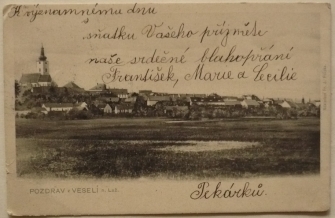 K významnému dnu
sňatku Vašeho přízniveši
naše srdečné blahopřání
František, Marie a Cecilie
POZDRAV z VESELÍ n. LUŽ.
Pekárků.